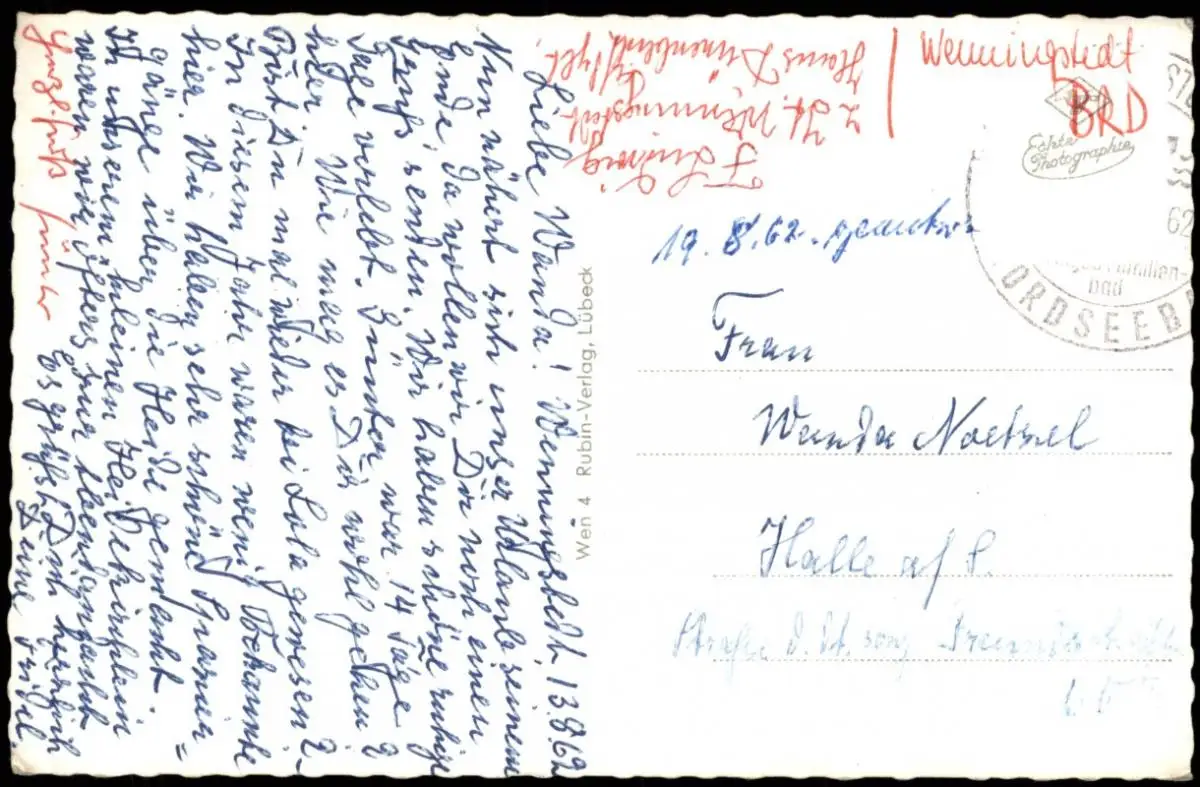 Wenningstedt
BRD
Echte
Photographie
62
Familien-
bad
ORDSEEB
F. Ludwig
z. Zt. Wenningstedt
Haus Dünenblick
Liebe Wanda! Wenningstedt, 13.8.62
Nun nähert sich unser Urlaub seinem
Ende, da wollen wir Dir noch einen
Gruß senden. Wir haben schöne ruhige
Tage verlebt. Günter war 14 Tage
hier. Wie mag es Dir wohl gehen?
Bist Du mal wieder bei Lola gewesen?
In diesem Jahr waren wenig Bekannte
hier. Wir haben sehr schöne Spazier=
gänge über die Heide gemacht.
In unserem kleinen Heidekirchlein
waren wir öfters zur Abendandacht
Es grüßt Dich herzlich
Deine
Herzl. Grüße Günter
Wen 4 Rubin-Verlag, Lübeck
19.8.62
Frau
Wanda Noetzel
Halle a/S.
Straße d. dt. sowj. Freundschaft